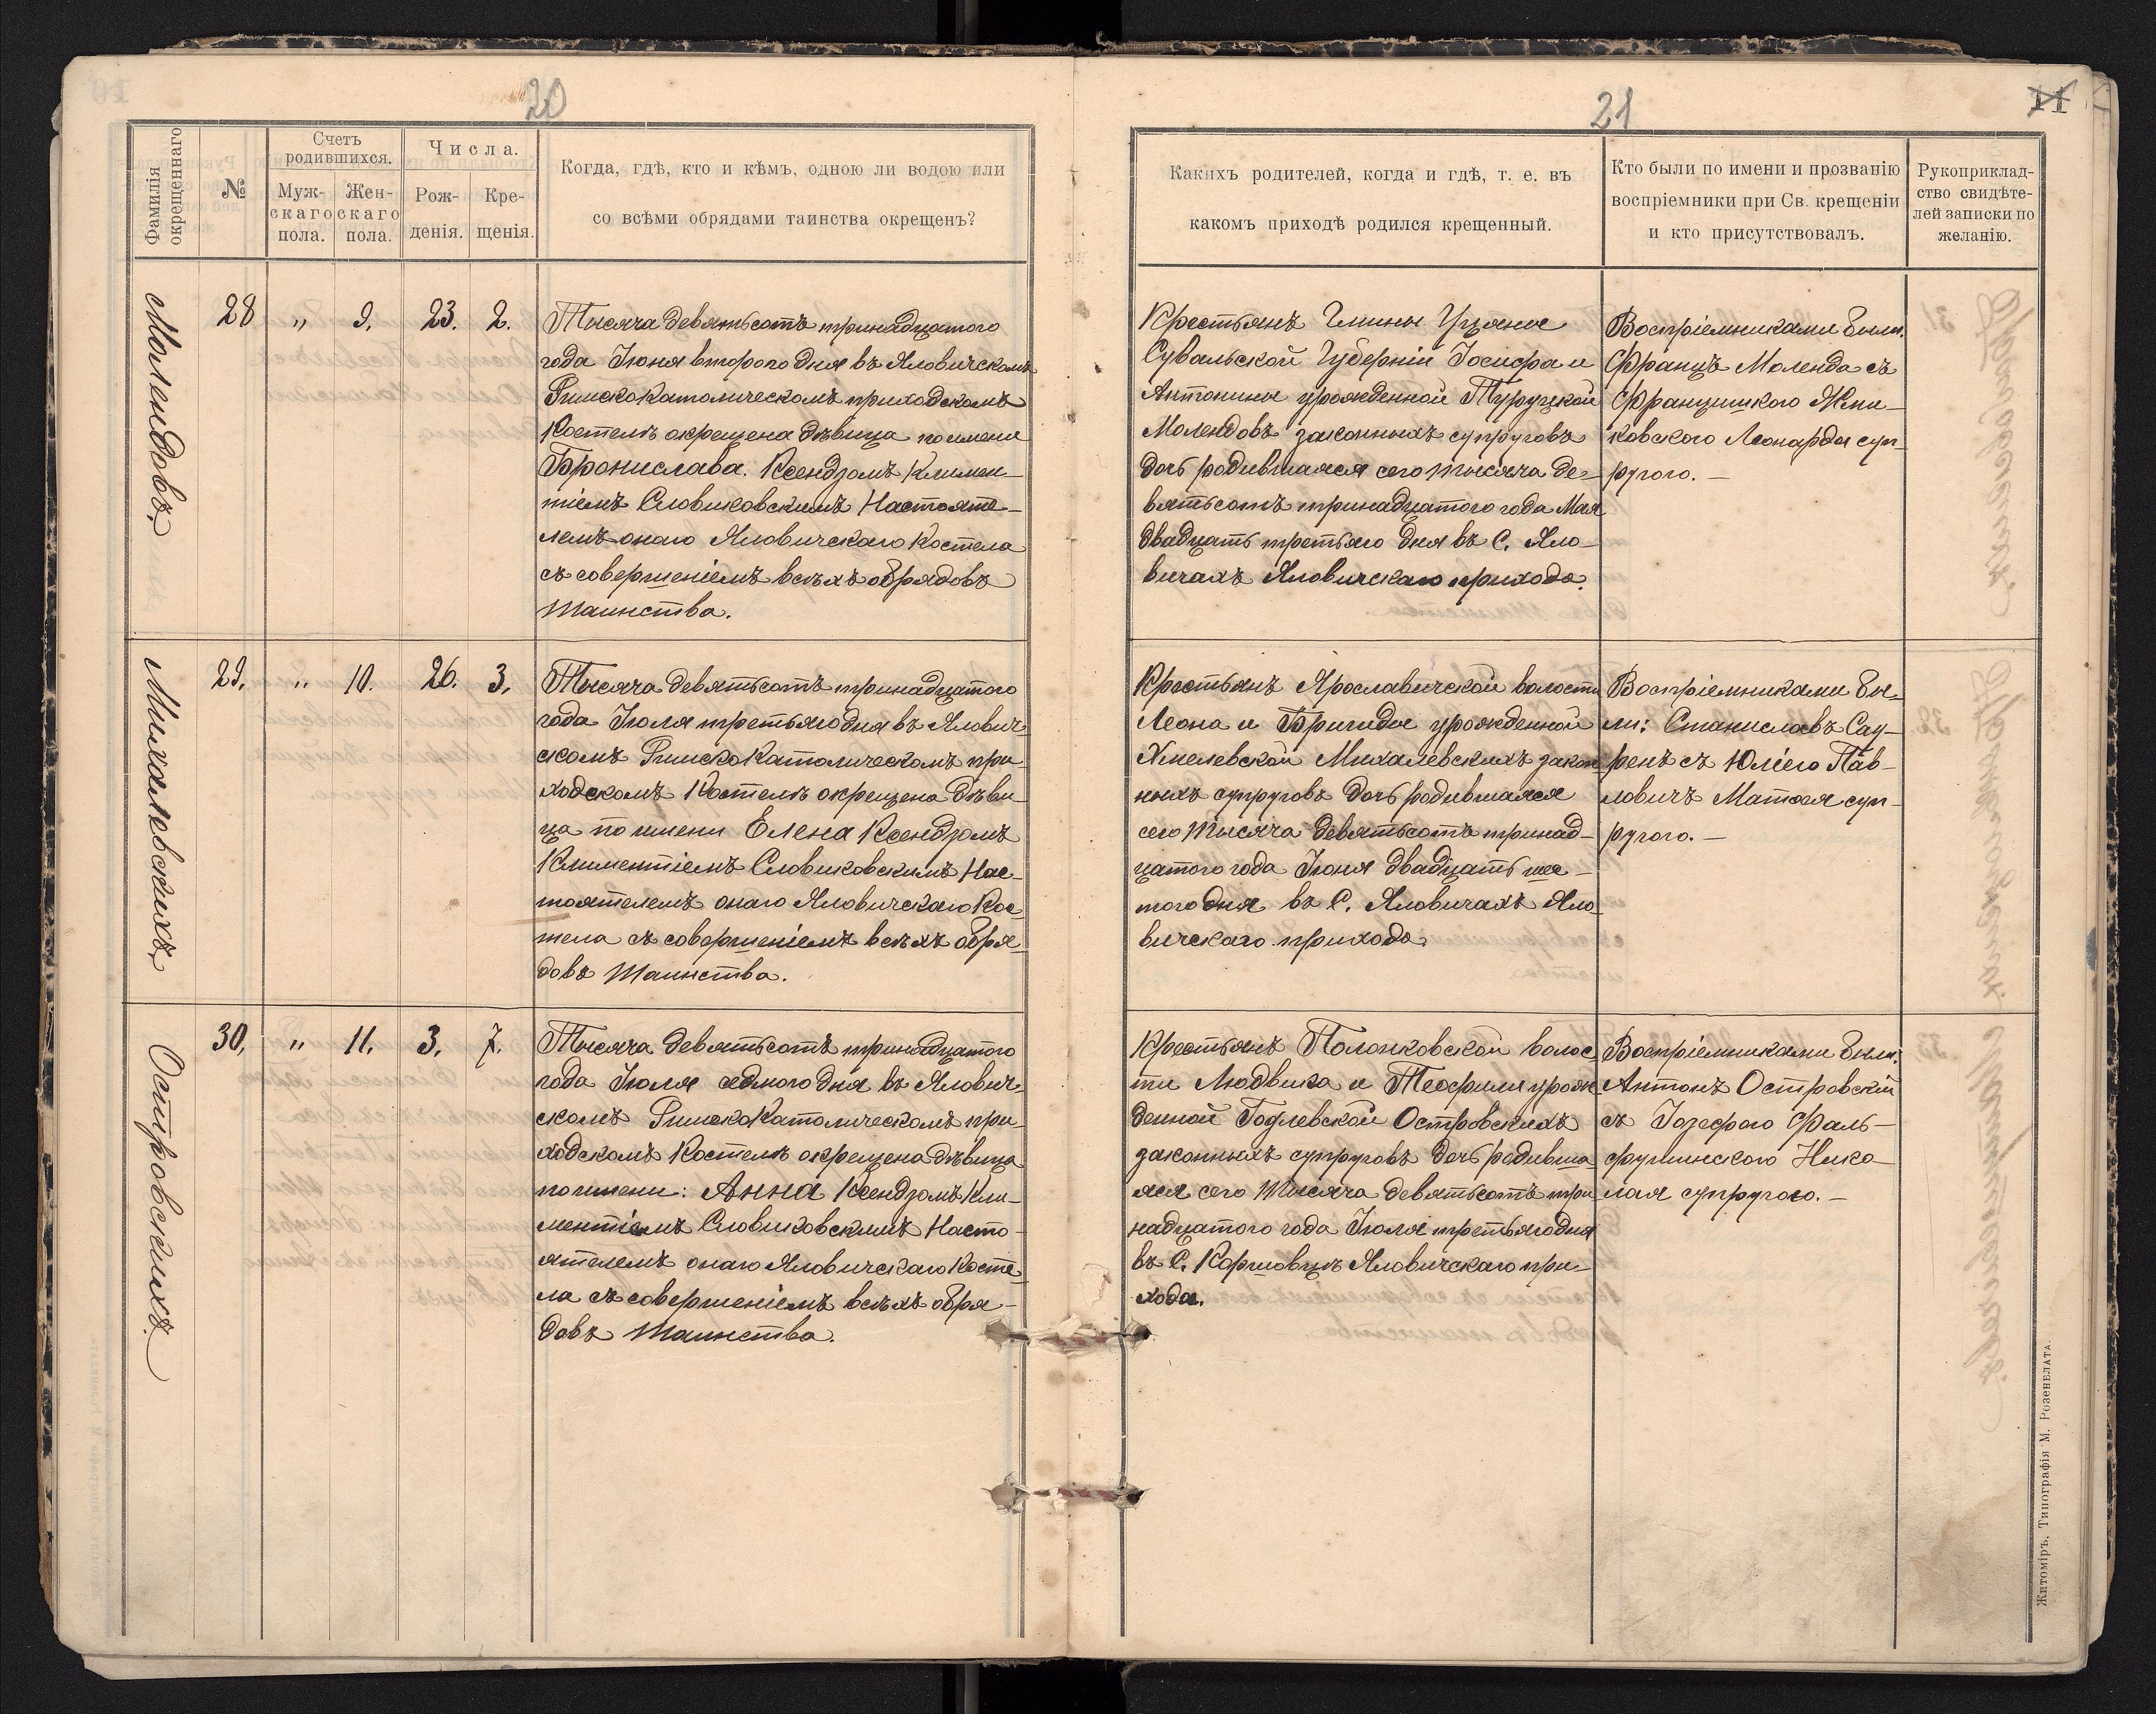 20
Фамилія окрещеннаго
№
Счетъ родившихся.
Муж-
скаго
пола.
Жен-
скаго
пола.
Числа.
Рож-
денія.
Кре-
щенія.
Когда, гдѣ, кто и кѣмъ, одною ли водою или
со всѣми обрядами таинства окрещенъ?
Молендовъ.
28
„
9.
23.
2.
Тысяча девятьсотъ тринадцатого
года Іюня второго дня въ Яловичскомъ
РимскоКатолическомъ приходскомъ
Костелѣ окрещена дѣвица по имени
Бронислава. Ксендзомъ Климен-
тіемъ Словиковскимъ Настояте-
лемъ онаго Яловичскаго Костела
съ совершеніемъ всѣхъ обрядовъ
Таинства.
Михалевскихъ
29.
„
10.
26.
3.
Тысяча девятьсотъ тринадцатого
года Іюля третьяго дня въ Ялович-
скомъ РимскоКатолическомъ при-
ходскомъ Костелѣ окрещена дѣви-
ца по имени Елена Ксендзомъ
Климентіемъ Словиковскимъ Нас-
тоятелемъ онаго Яловичскаго Кос-
тела съ совершеніемъ всѣхъ обря-
довъ Таинства.
Островскихъ.
30.
„
11.
3.
7.
Тысяча девятьсотъ тринадцатого
года Іюля седмого дня въ Ялович-
скомъ РимскоКатолическомъ при-
ходскомъ Костелѣ окрещена дѣвица
по имени: Анна Ксендзомъ Кли-
ментіемъ Словиковскимъ Насто-
ятелемъ онаго Яловичскаго Косте-
ла съ совершеніемъ всѣхъ обря-
довъ Таинства.
21
11
Какихъ родителей, когда и гдѣ, т. е. въ
какомъ приходѣ родился крещенный.
Кто были по имени и прозванію
воспріемники при Св. крещеніи
и кто присутствовалъ.
Рукоприклад-
ство свидѣте-
лей записки по
желанію.
Крестьянъ Гмины
Сувальской Губерніи Іосифа и
Антонины урожденной
Молендовъ законныхъ супруговъ
дочь родившаяся сего тысяча де-
вятьсотъ тринадцатого года Мая
двадцать третьяго дня въ С. Яло-
вичахъ Яловичскаго прихода.
Воспріемниками были:
Францъ Моленда съ
Францишкою Жми-
ковскою Леонарда суп-
ругою. –
Крестьянъ Ярославичской волости
Леона и Бригиды урожденной
Хмелевской Михалевскихъ закон-
ныхъ супруговъ дочь родившаяся
сего тысяча девятьсотъ тринад-
цатого года Іюня двадцать шес-
того дня въ С. Яловичахъ Яло-
вичскаго прихода.
Воспріемниками бы-
ли: Станиславъ
съ Юліею Пав-
ловичъ Матвея суп-
ругою. –
Крестьянъ Полонковской волос-
ти Людвика и Теофили урож-
денной Годлевской Островскихъ
законныхъ супруговъ дочь родивша-
яся сего тысяча девятьсотъ три-
надцатого года Іюля третьяго дня
въ С. Коршовцѣ Яловичскаго при-
хода.
Воспріемниками были:
Антонъ Островскій
съ Іозефою Фаль-
Нико-
лая супругою. –
Житоміръ, Типографія М. Розенблата.